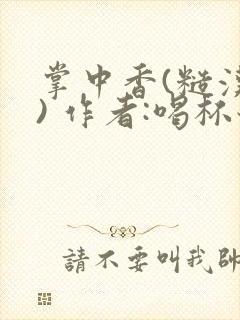 掌中香(糙漢
) 作者:喝杯
請不要叫我帥